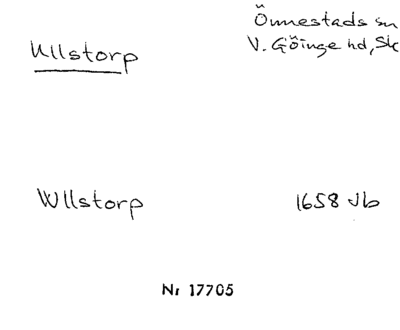 Önnestads sn
Ullstorp
V. Göinge hd, Sk
Wllstorp 1658 Jb
Nr 17705